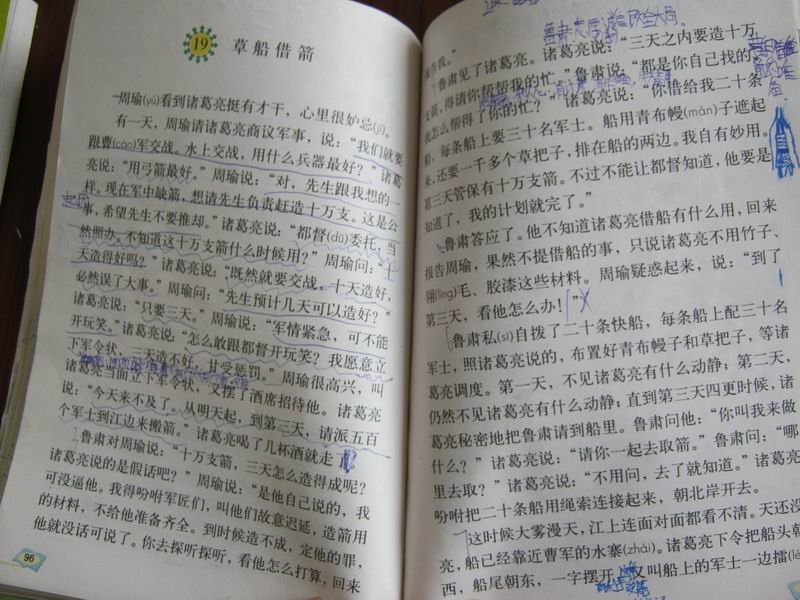 19 草船借箭
周瑜(yú)看到诸葛亮挺有才干，心里很妒忌(jì)。
有一天，周瑜请诸葛亮商议军事，说：“我们就要
跟曹(cáo)军交战。水上交战，用什么兵器最好？”诸葛
亮说：“用弓箭最好。”周瑜说：“对，先生跟我想的一
样。现在军中缺箭，想请先生负责赶造十万支。这是公
事，希望先生不要推却。”诸葛亮说：“都督(dū)委托，当
然照办。不知道这十万支箭什么时候用？”周瑜问：“十
天造得好吗？”诸葛亮说：“既然就要交战，十天造好，
必然误了大事。”周瑜问：“先生预计几天可以造好？”
诸葛亮说：“只要三天。”周瑜说：“军情紧急，可不能
开玩笑。”诸葛亮说：“怎么敢跟都督开玩笑？我愿意立
下军令状，三天造不好，甘受惩罚。”周瑜很高兴，叫
诸葛亮当面立下军令状，又摆了酒席招待他。诸葛亮
说：“今天来不及了。从明天起，到第三天，请派五百
个军士到江边来搬箭。”诸葛亮喝了几杯酒就走
鲁肃对周瑜说：“十万支箭，三天怎么造得成呢？
诸葛亮说的是假话吧？”周瑜说：“是他自己说的，我
可没逼他。我得吩咐军匠们，叫他们故意迟延，造箭用
的材料，不给他准备齐全。到时候造不成，定他的罪，
他就没话可说了。你去探听探听，看他怎么打算，回来
96
报告我。”
鲁肃见了诸葛亮。诸葛亮说：“三天之内要造十万
支箭，得请你帮帮我的忙。”鲁肃说：“都是你自己找的，
我怎么帮得了你的忙？”诸葛亮说：“你借给我二十条
船，每条船上要三十名军士。船用青布幔(màn)子遮起
来，还要一千多个草把子，排在船的两边。我自有妙用。
第三天管保有十万支箭。不过不能让都督知道，他要是
知道了，我的计划就完了。”
鲁肃答应了。他不知道诸葛亮借船有什么用，回来
报告周瑜，果然不提借船的事，只说诸葛亮不用竹子、
翎(líng)毛、胶漆这些材料。周瑜疑惑起来，说：“到了
第三天，看他怎么办！”
鲁肃私(sī)自拨了二十条快船，每条船上配三十名
军士，照诸葛亮说的，布置好青布幔子和草把子，等诸
葛亮调度。第一天，不见诸葛亮有什么动静；第二天，
仍然不见诸葛亮有什么动静；直到第三天四更时候，诸
葛亮秘密地把鲁肃请到船里。鲁肃问他：“你叫我来做
什么？”诸葛亮说：“请你一起去取箭。”鲁肃问：“哪
里去取？”诸葛亮说：“不用问，去了就知道。”诸葛亮
吩咐把二十条船用绳索连接起来，朝北岸开去。
这时候大雾漫天，江上连面对面都看不清。天还没
亮，船已经靠近曹军的水寨(zhài)。诸葛亮下令把船头朝
西，船尾朝东，一字摆开，又叫船上的军士一边擂(lé